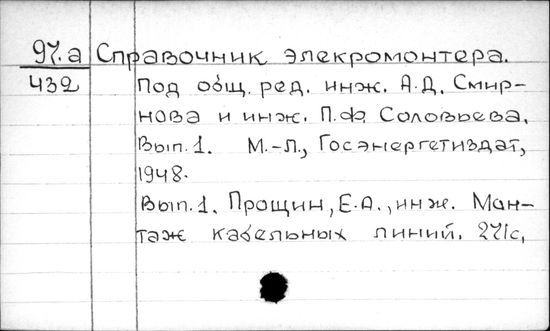 97.а Справочник элекромонтера.
432 Под общ. ред. инж. А.Д. Смир-
нова и инж. П.Ф. Соловьева.
Вып. 1. М.-Л., Госэнергетиздат,
1948.
Вып. 1. Прощин, Е.А., инж. Мон-
таж кабельных линий. 271с.